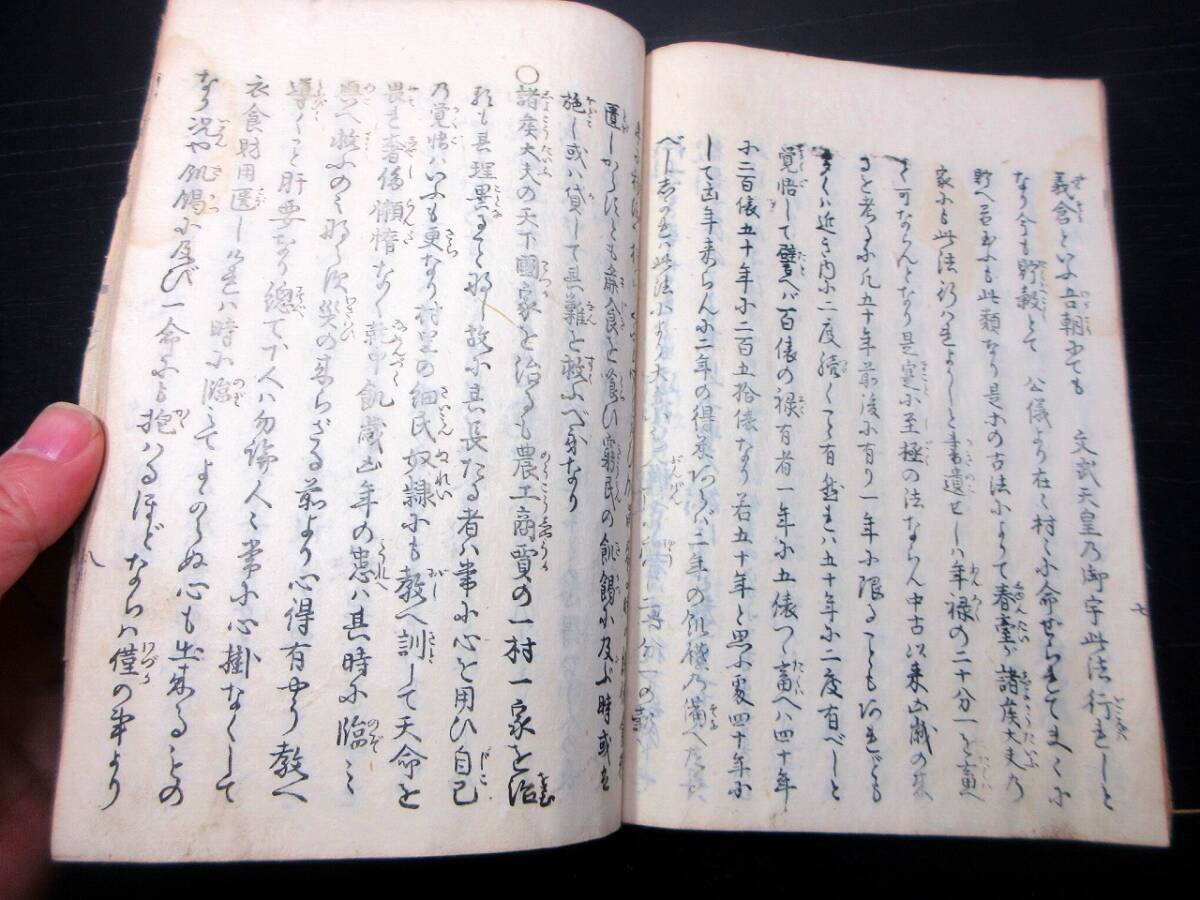 義倉といふ吾朝にても 文武天皇の御宇此法行れしと
なり今も貯穀とて 公儀より在々村々に命ぜられてまくに
貯へ置るも此類なり是等の古法によりて春臺が諸侯大夫の
家にも此法行はれよしと書遺せしハ年禄の二十分一を畜へ
て可ならんとなり是寔に至極の法ならん中古以来凶歳の
ると考るに凡五十年前後に有り一年に限ることもあれども
多くハ近き内に二度続くこと有然れハ五十年に二度有べしと
覚悟して譬ヘバ百俵の禄有者一年に五俵づゝ畜へハ四十年
に二百俵五十年に二百五拾俵なり若五十年と思ふ処四十年に
して凶年来らんに二年の得ありハ二年の飢饉乃備へ
べし
匱しからずとも麁食を喰ひ窮民の飢餲に及ぶ時或は
施し或ハ貸して其難を救ふべき事なり
○諸侯大夫の天下國家を治るも農工商賈の一村一家を治
るも其理異ること那し故に其長たる者ハ常に心を用ひ自己
乃覚悟ハいふも更なり村里の細民奴隷にも教へ訓して天命を
畏き奢侈懶惰なく兼而飢歳凶年の患ハ其時に臨ミ
與へ救ふのミならず災の来らざる前より心得有やう教へ
導くこと肝要なり總て下人ハ勿論人々常に心掛なくして
衣食財用匱しけれハ時に臨ミてよからぬ心も出来ることの
なり况や飢餲に及び一命にも抱ハるほどならハ僅の事より
七
八